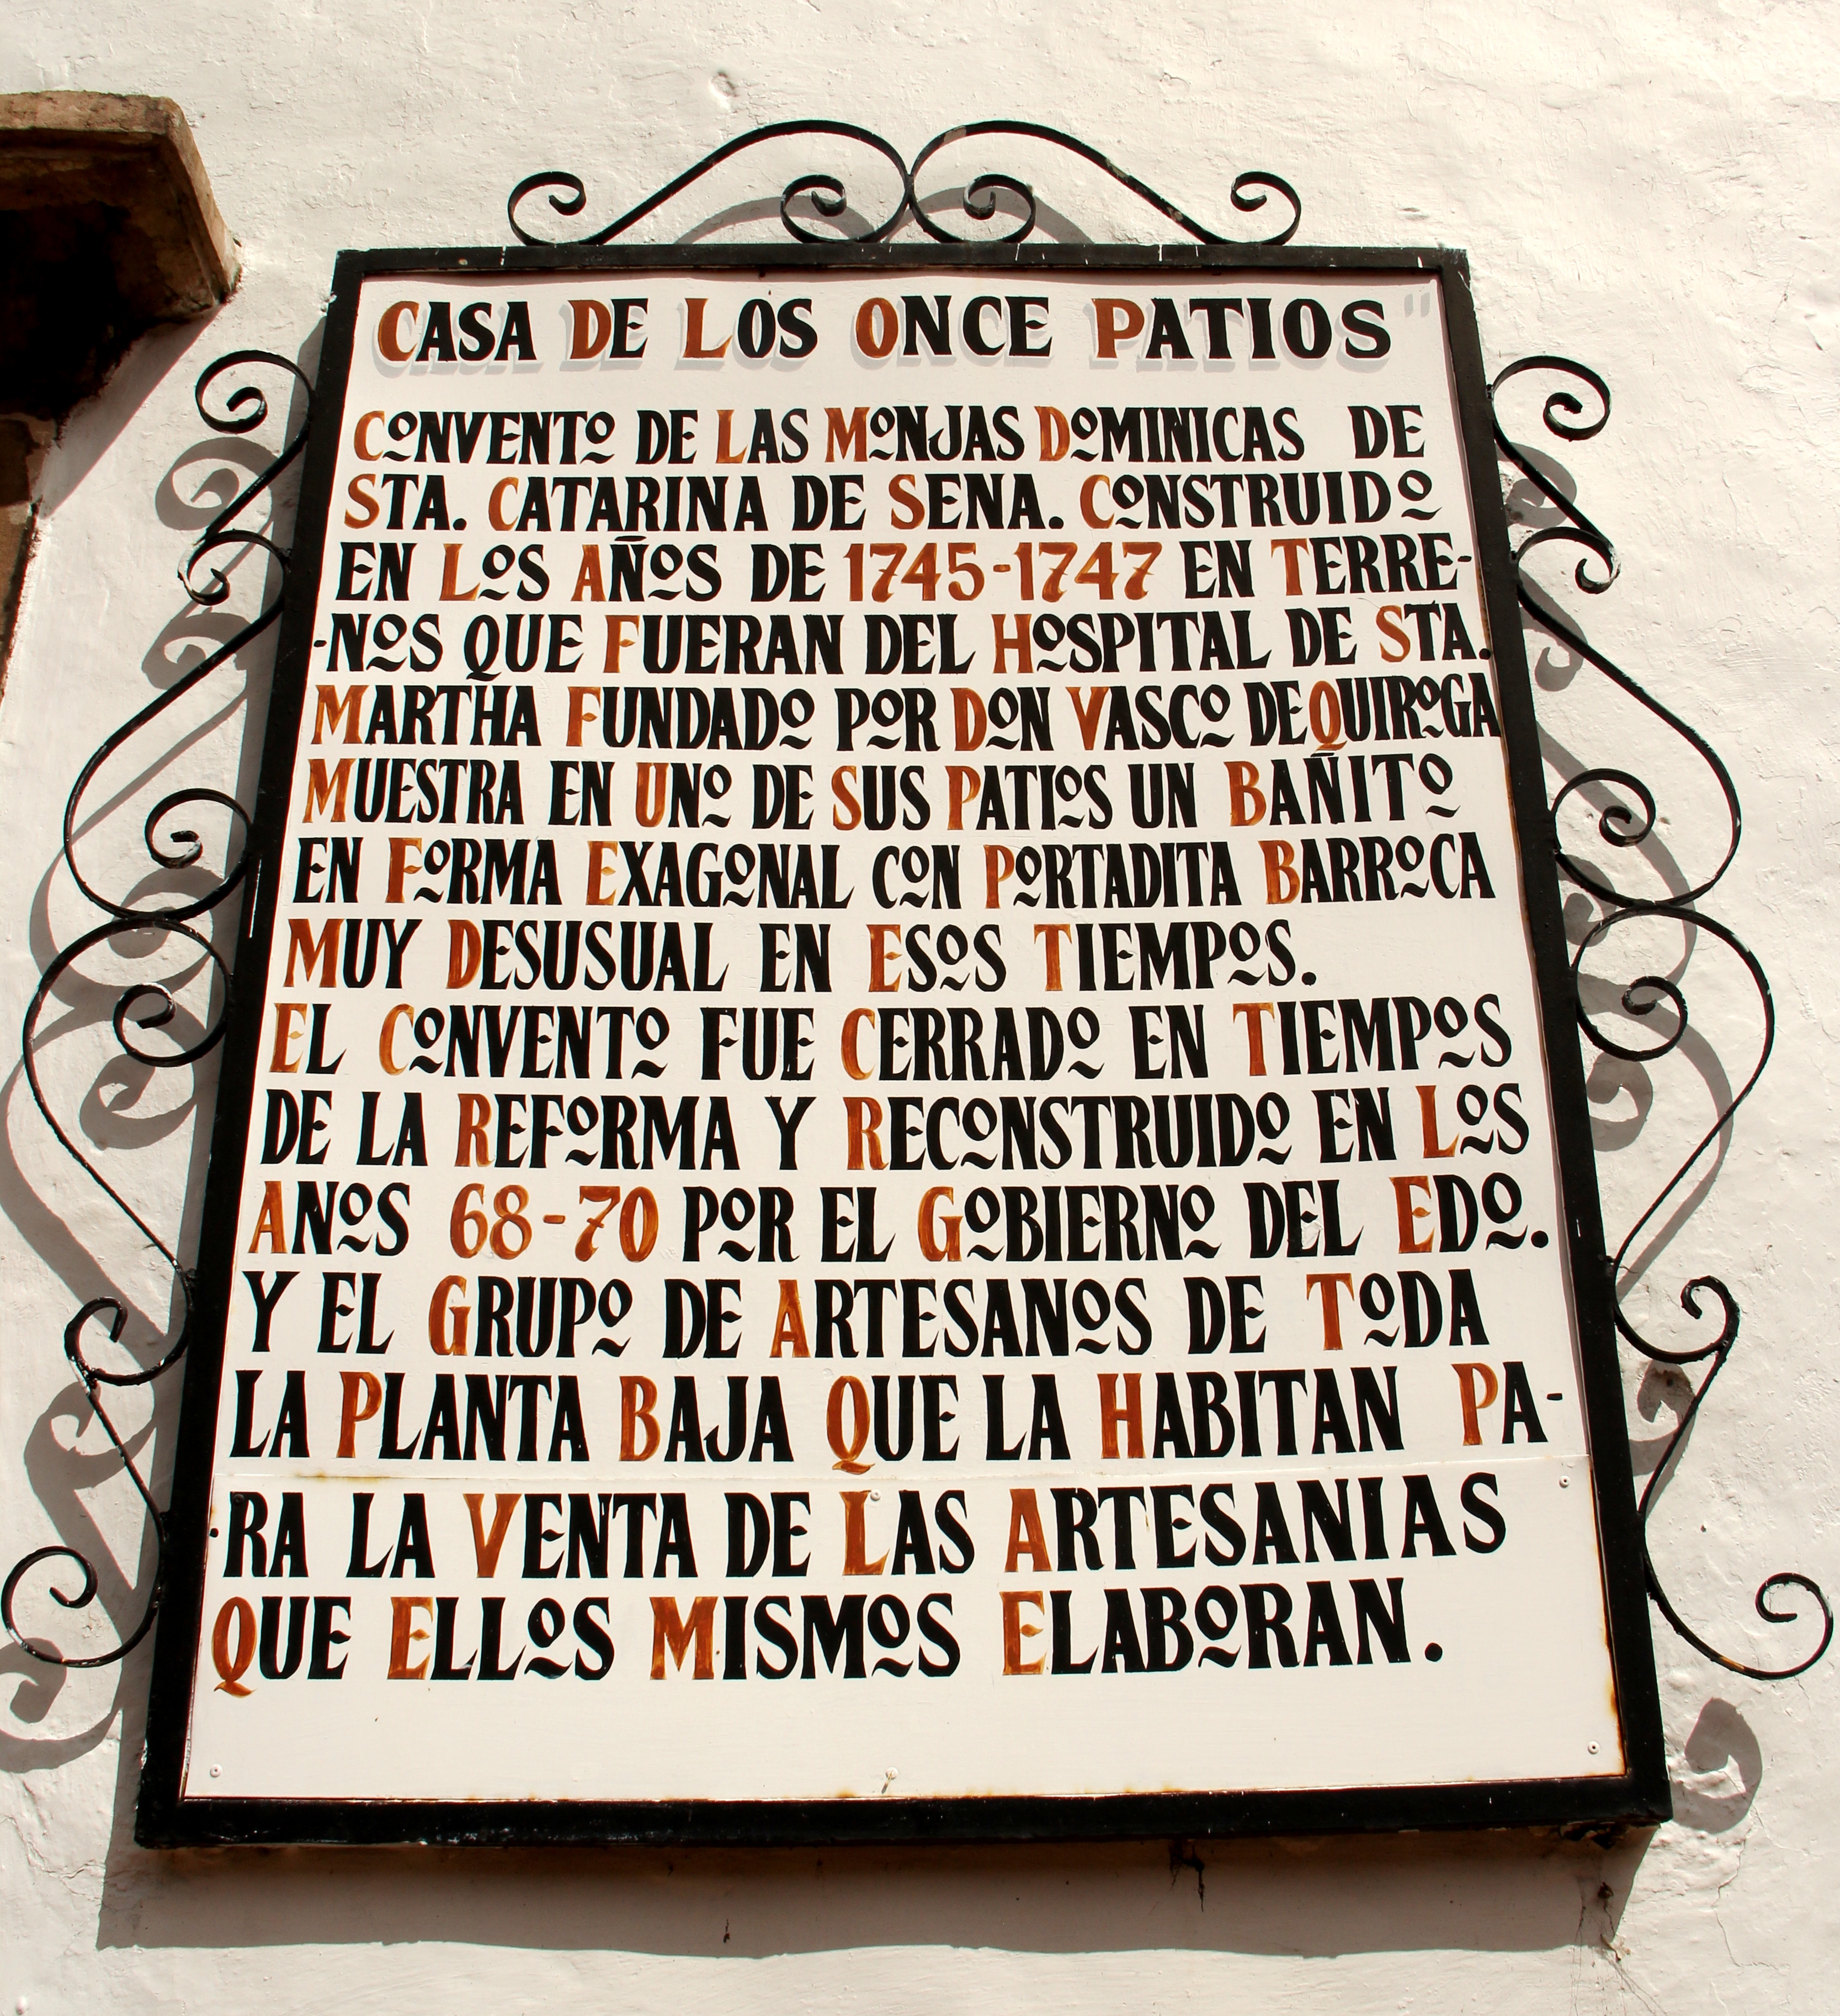 CASA DE LOS ONCE PATIOS"
CONVENTO DE LAS MONJAS DOMINICAS DE
STA. CATARINA DE SENA. CONSTRUIDO
EN LOS AÑOS DE 1745-1747 EN TERRE-
-NOS QUE FUERAN DEL HOSPITAL DE STA.
MARTHA FUNDADO POR DON VASCO DE QUIROGA
MUESTRA EN UNO DE SUS PATIOS UN BAÑITO
EN FORMA EXAGONAL CON PORTADITA BARROCA
MUY DESUSUAL EN ESOS TIEMPOS.
EL CONVENTO FUE CERRADO EN TIEMPOS
DE LA REFORMA Y RECONSTRUIDO EN LOS
ANOS 68-70 POR EL GOBIERNO DEL EDO.
Y EL GRUPO DE ARTESANOS DE TODA
LA PLANTA BAJA QUE LA HABITAN PA-
-RA LA VENTA DE LAS ARTESANIAS
QUE ELLOS MISMOS ELABORAN.